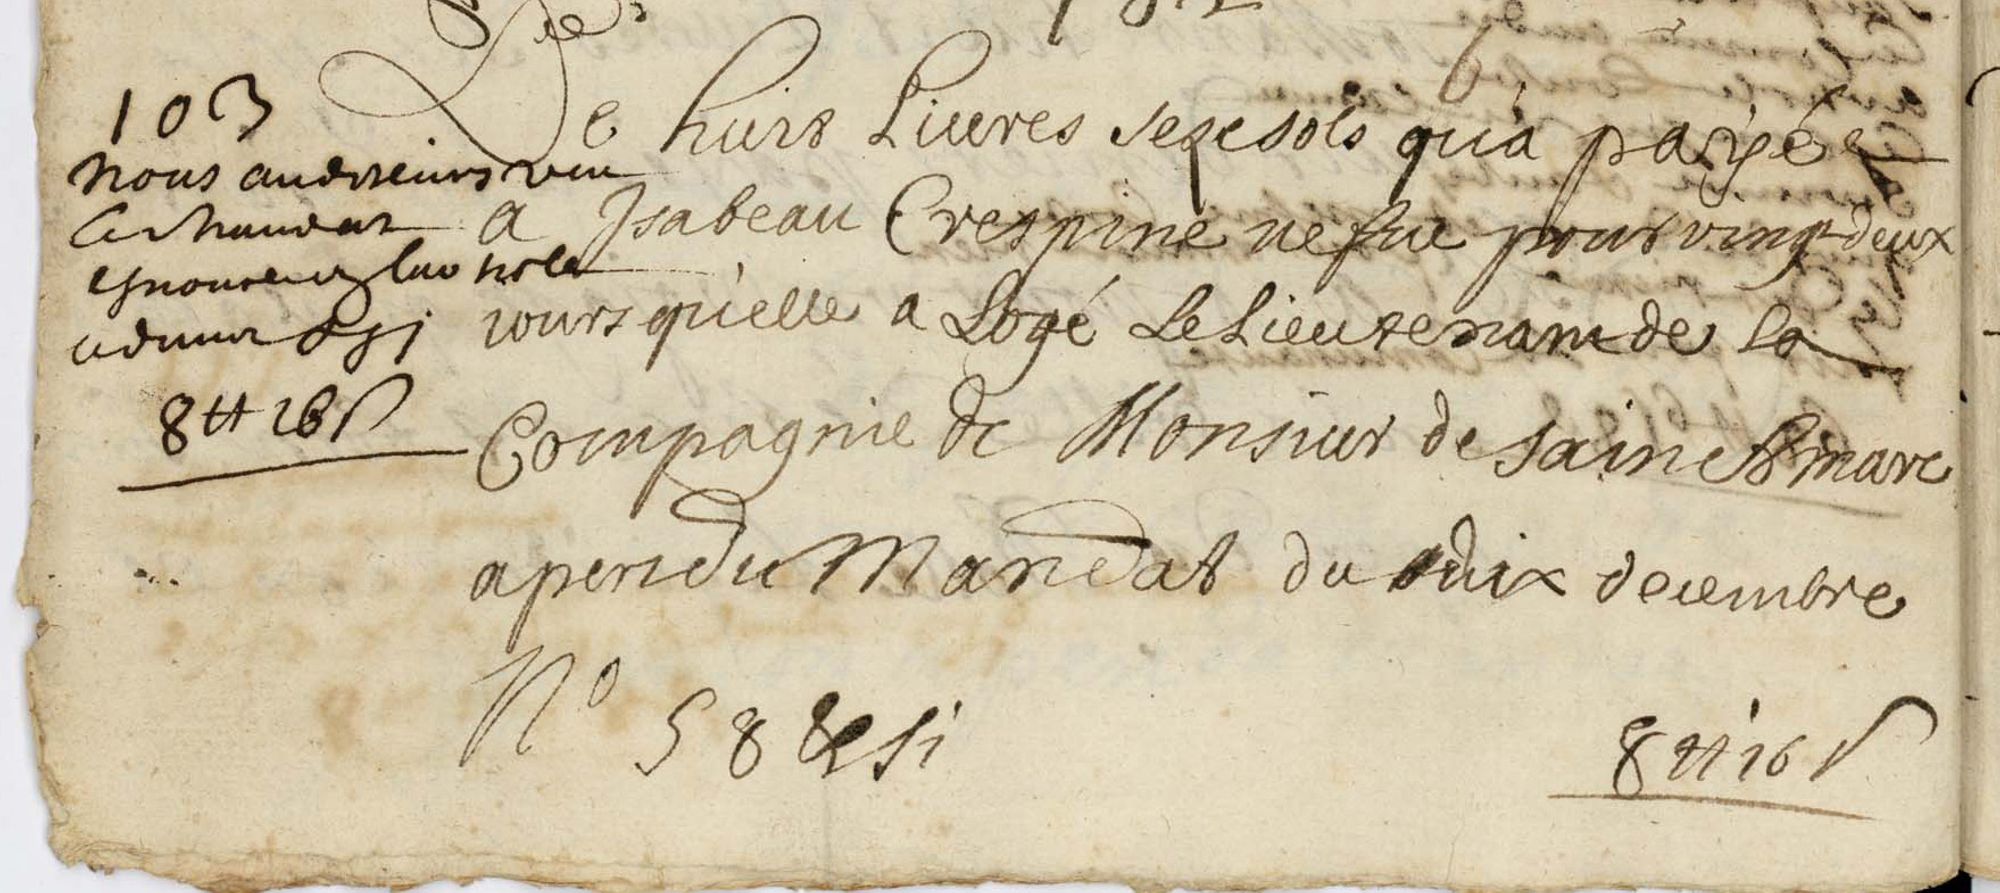 103
nous auditeurs veu
le mandat
8 tt 16 s
De huit Livres sezesols qu'a payée
a Isabeau Crespine vefue pour vingt deux
iours qu'elle a Logé Le Lieutenant de la
Compagnie de Monsieur de sainct marc
apert du Mandat du dix decembre
No 58
8 tt 16 s